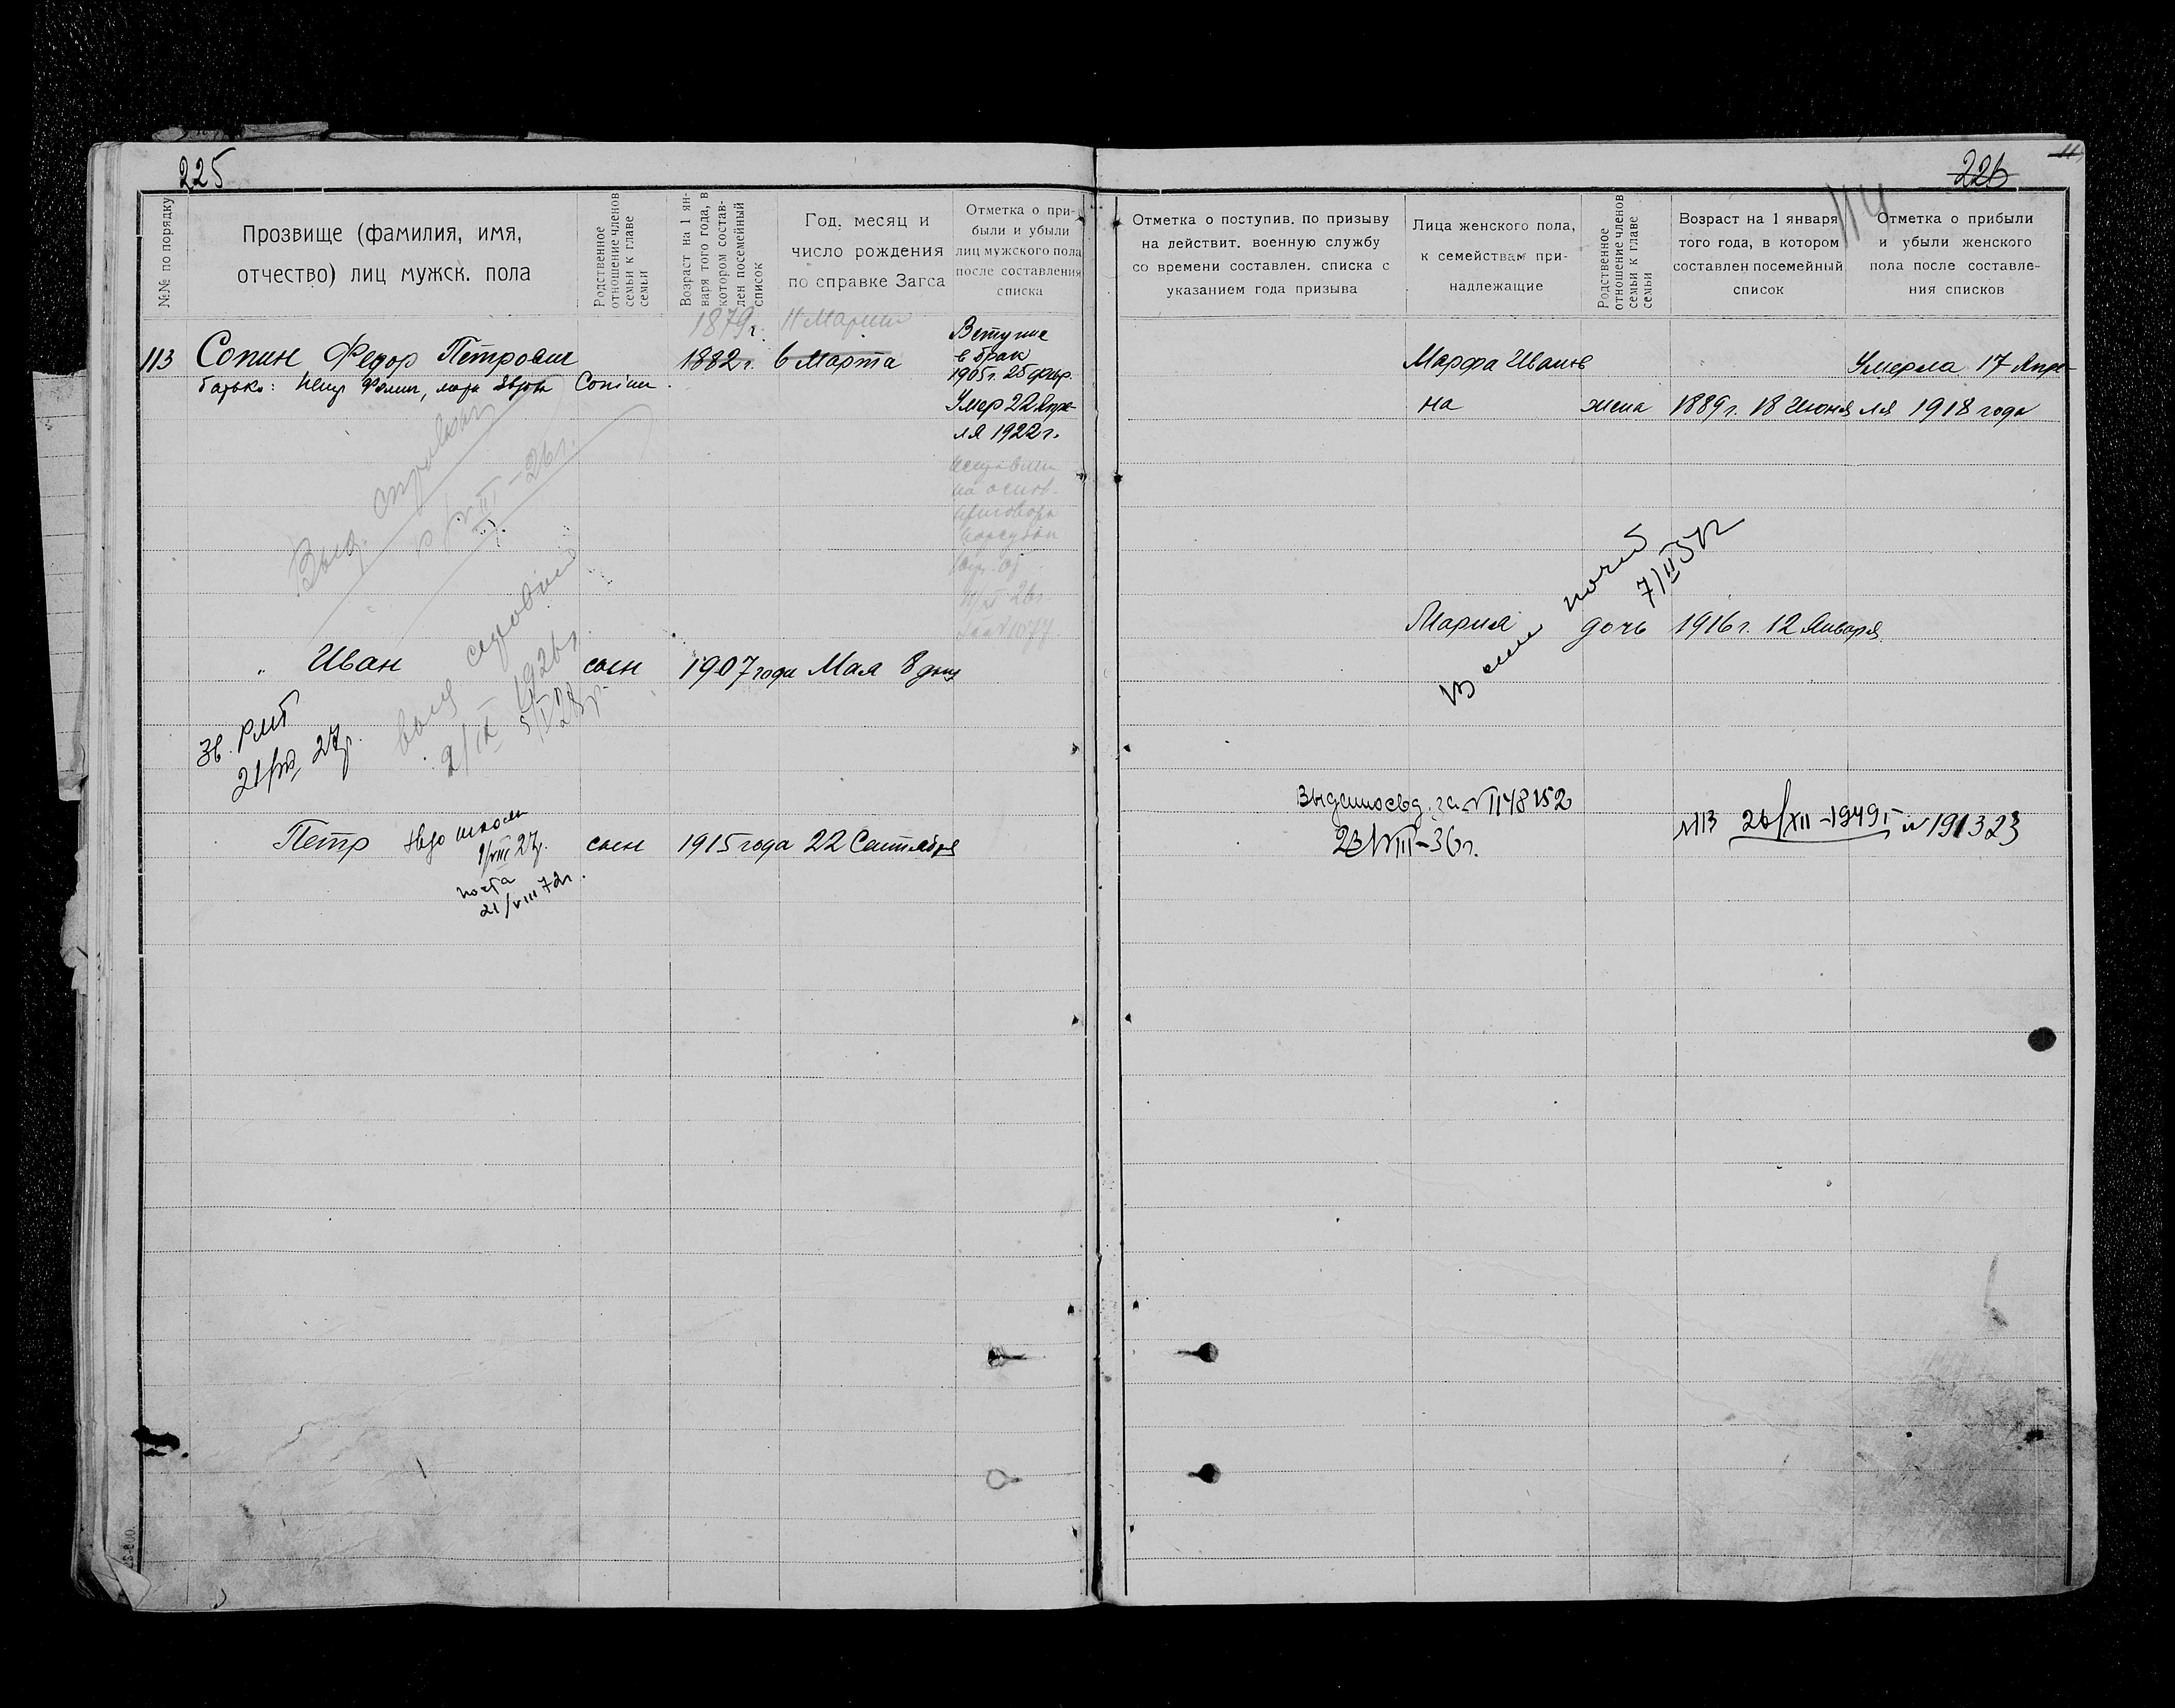 225
№№ по порядку
Прозвище (фамилия, имя,
отчество) лиц мужск. пола
Родственное
отношение членов
семьи к главе
семьи
Возраст на 1 ян-
варя того года, в
котором состав-
лен посемейный
список
Год, месяц и
число рождения
по справке Загса
Отметка о при-
были и убыли
лиц мужского пола
после составления
списка
1879г. 11 Марта
113 Сопин Федор Петрович 1882г. 6 Марта
Вступил
в брак
1905г. 25 февр.
Умер 22 Апре-
ля 1922г.
батько:
Выд.
VIII-26г.
на основ.
приговора
Иван сын 1907 года Мая 8 дня
2/IX 1926г.
Зв.
21/ 27р.
Петр сын 1915 года 22 Сентября
школи
1/VIII 27р.
почта
21/VIII 72г.
226
114
Отметка о поступив. по призыву
на действит. военную службу
со времени составлен. списка с
указанием года призыва
Лица женского пола,
к семействам при-
надлежащие
Родственное
отношение членов
семьи к главе
семьи
Возраст на 1 января
того года, в котором
составлен посемейный
список
Отметка о прибыли
и убыли женского
пола после составле-
ния списков
Марфа Иванов Умерла 17 Апре-
на жена 1889г. 18 Июня ля 1918 года
7/II 57г
Мария дочь 1916г. 12 Января
Выдано свд. за № 1148152
23/VIII-36г.
26/XII-1949г № 191323